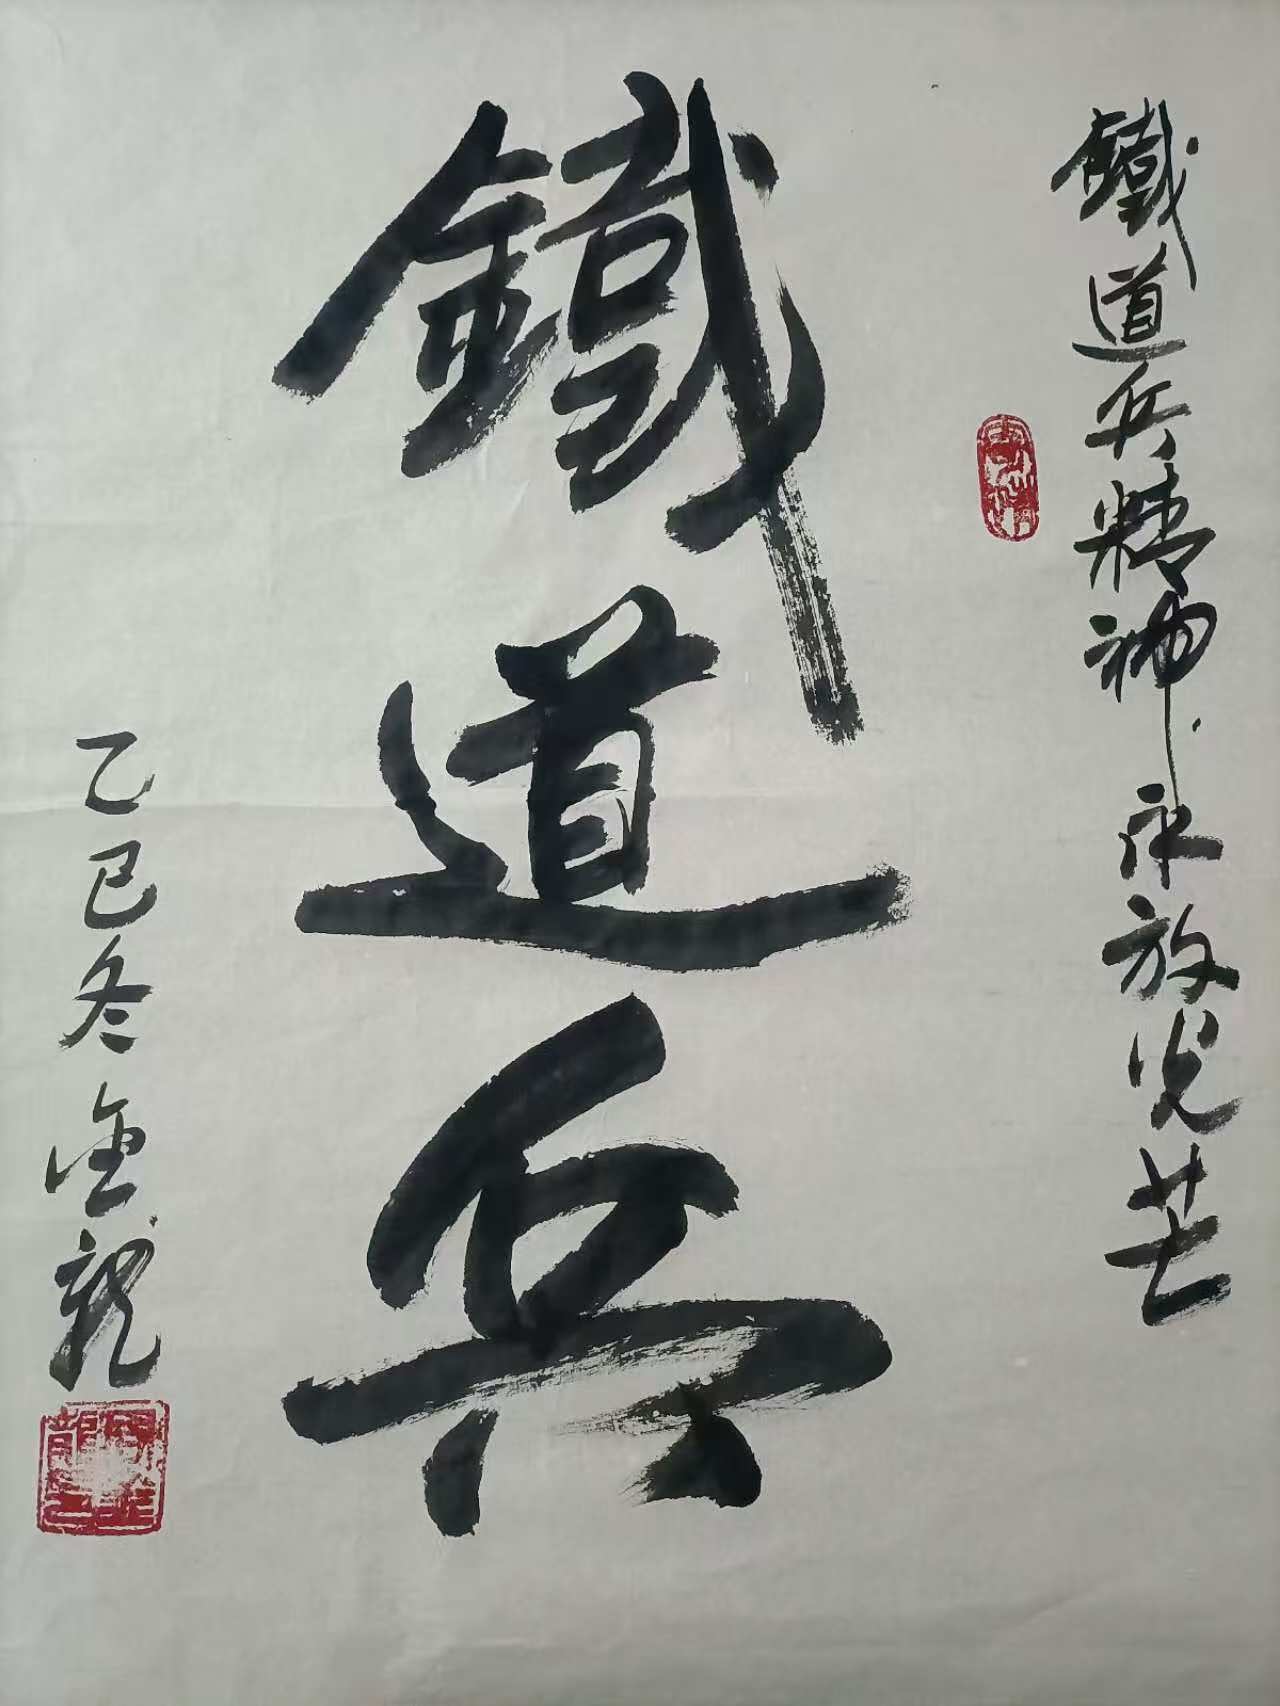 鐵道兵精神永放光芒
鐵道兵
乙巳冬金龍